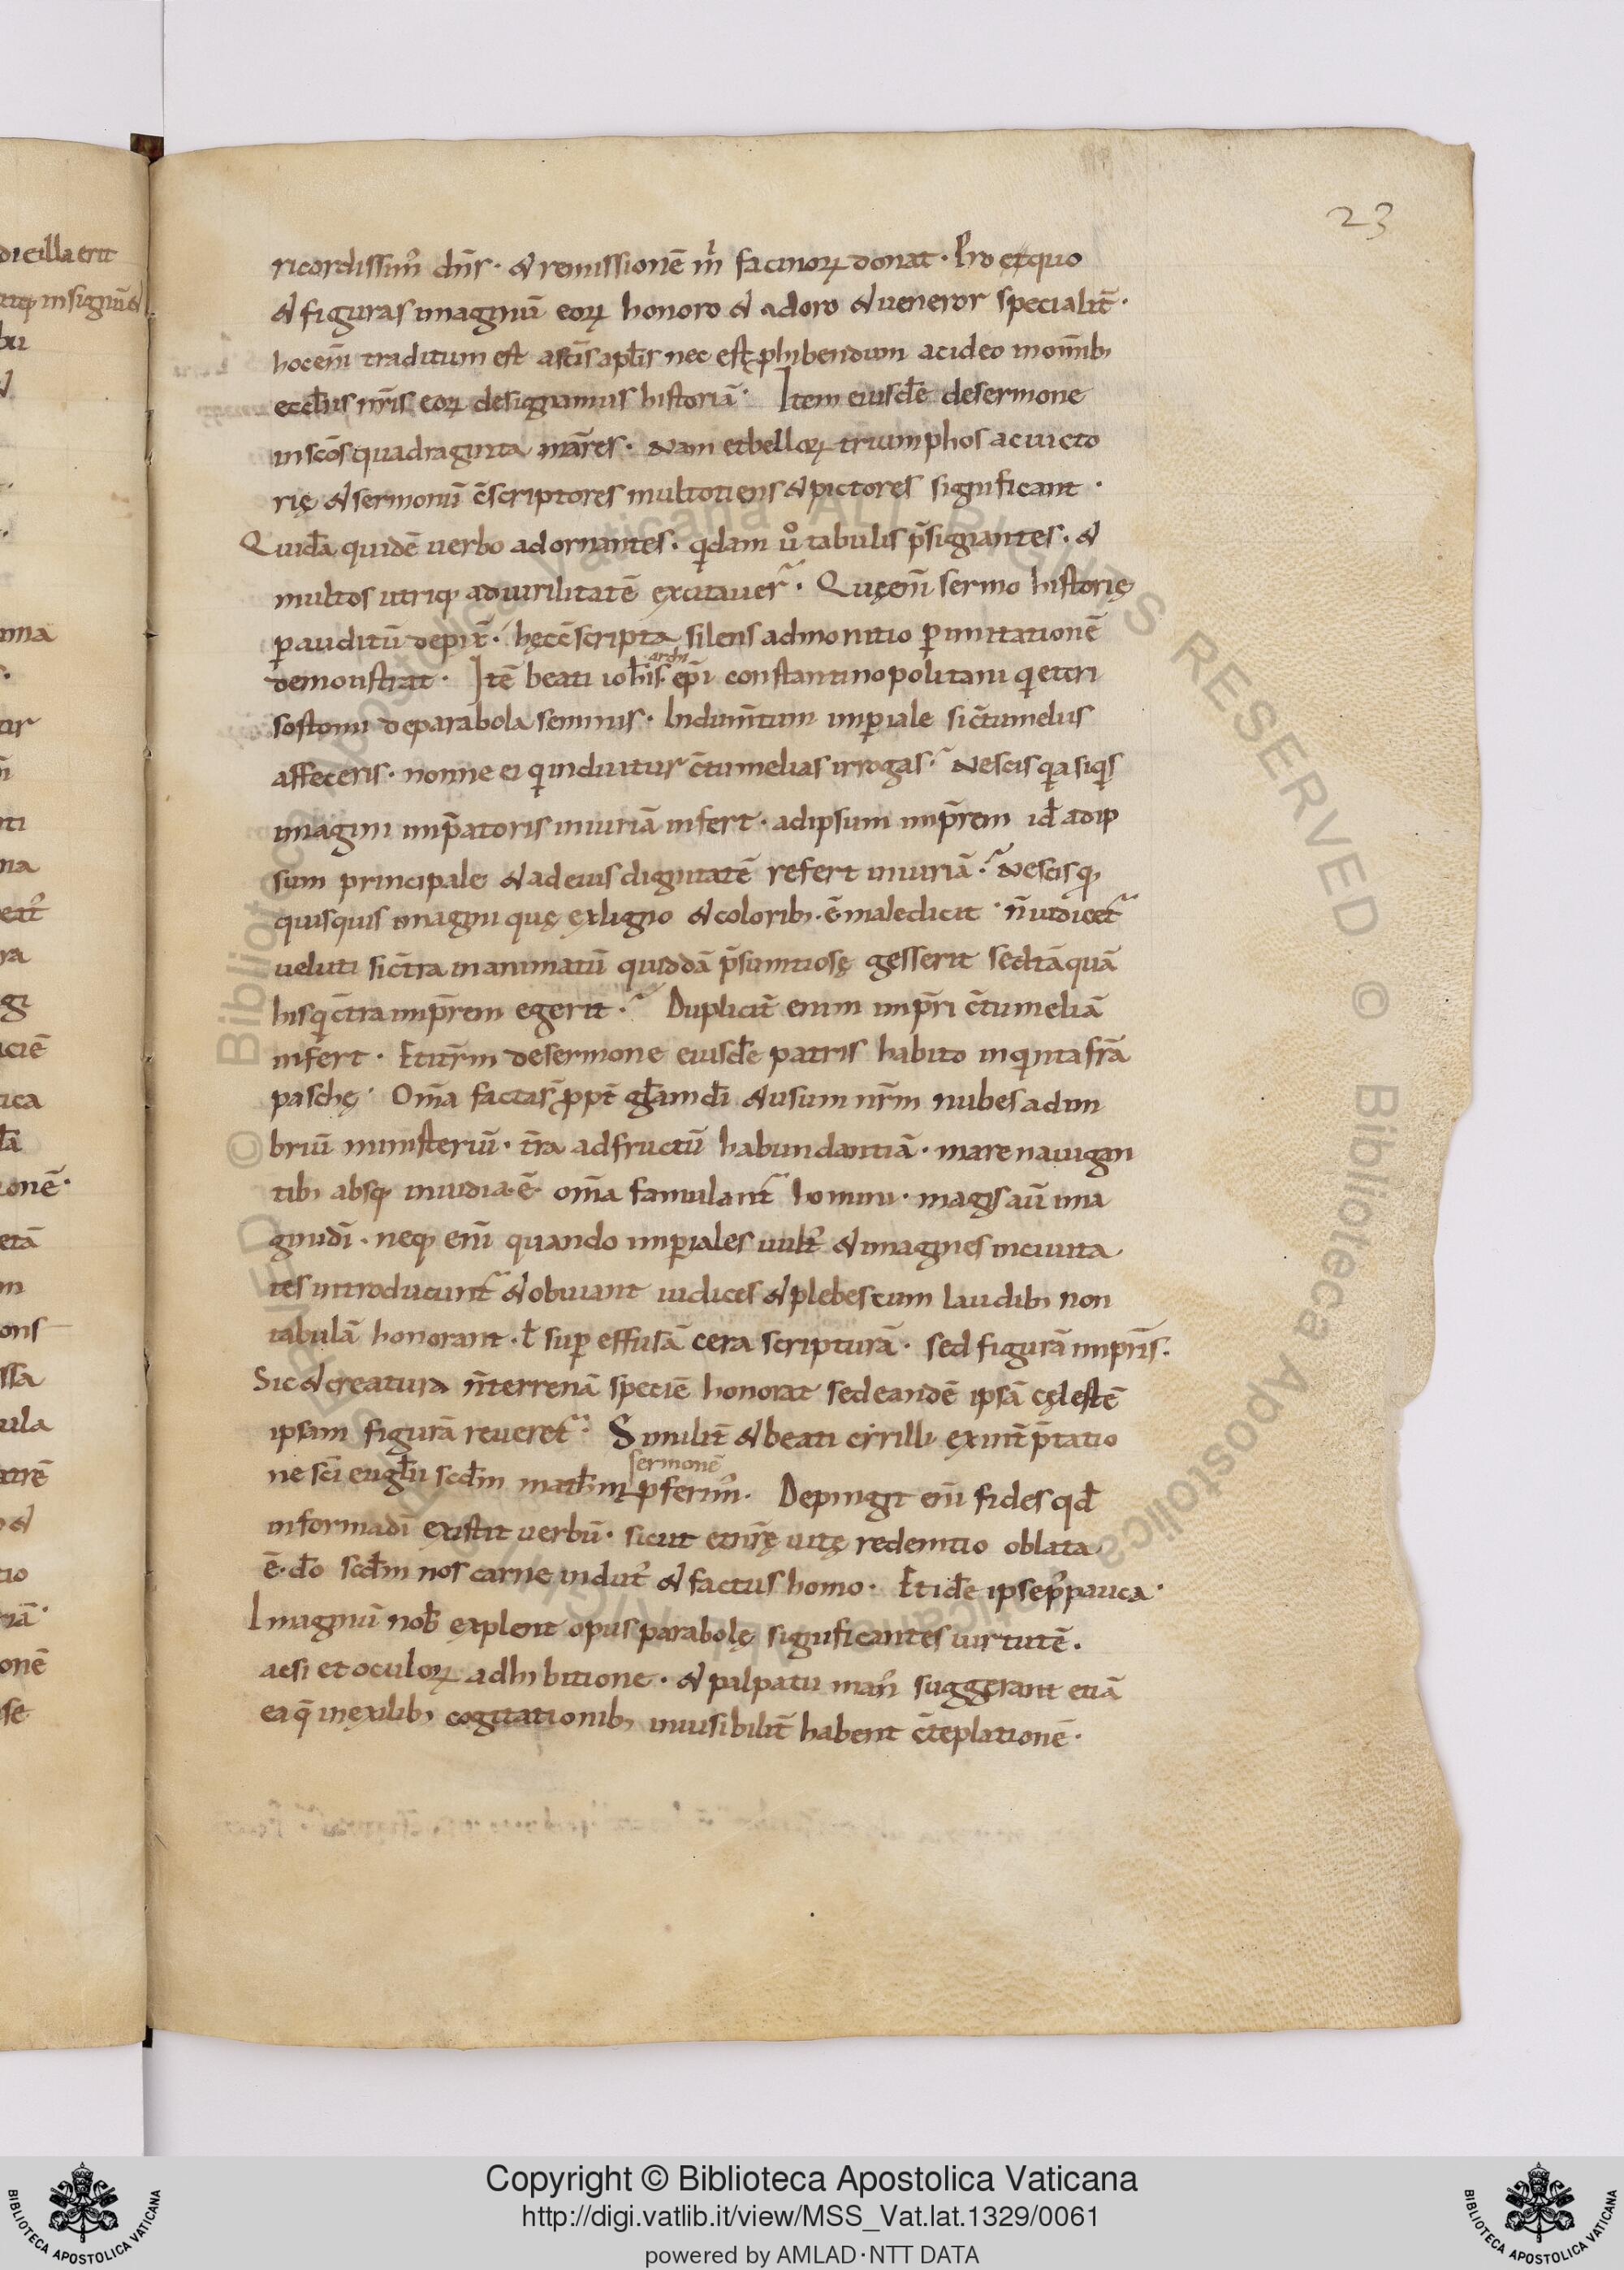 23
ricordissim᷒ dn̄s · & remissionē m̄ facinoꝝ donat · Pro etquo
& figuras imaginū eoꝝ honoro & adoro & ueneror specialit̄ ·
hocenī traditum est asc̄is apl̄is nec est ꝓhibendum acideo inomnibꝫ
eccl̄iis nr̄is eoꝝ designamus historiā · Item eiusdē desermone
insc̄os quadraginta mār̄es · Nam etbelloꝝ triumphos acuicto
rię & sermonū c̄scriptores multotiens & pictores significant ·
Quidā quidē uerbo adornantes · qͥdam uͦ tabulis p̄signantes · &
multos utriqꝫ aduirilitatē excitauer᷑ · Quęenī sermo historię
ꝑ auditū depix̄ · hęcc̄scripta silens admonitio ꝑ imitationē
demonstrat · Itē beati ioh̄is archiep̄i constantinopolitani qͥ etcri
sostomi deparabola seminis · Indum̄tum imꝑiale sic̄tumelus
affeceris · nonne ei qͥ induitur c̄tumelias irrogas ·᷑ Nescis qͥa siqͥs
imagini imp̄atoris iniuriā infert · adipsum imp̄rem id̄ adip
sum principale & adeius dignitatē refert iniuriā ·᷑ Nescis qꝫ
quisquis imagini quę exligno & coloribꝫ · ē maledicit · n̄ iudicet᷑
ueluti sic̄tra inanimatū quiddā p̄sumtiosę gesserit sedtāquā
hisqͥ c̄tra imp̄rem egerit ·᷑ Duplicit̄ enim imp̄ri c̄tumeliā
infert · Etitr̄m desermone eiusdē patris habito inqͥnta fr̄a
paschę · Om̄a factas̄ ꝓpt̄ gl̄amdī & usum nr̄m nubes adim
briū ministeriū · t̄ra adfructū habundantiā · mare nauigan
tibꝫ absqꝫ inuidia · ē · om̄a famulant᷑ homini · magis aū ima
ginidī · neqꝫ enī quando imꝑiales uult᷒ & imagines inciuita
tes introducunt᷑ & obuiant iudices & plebes cum laudibꝫ non
tabulā honorant · ł suꝑ effusā cera scripturā · sed figurā imp̄ris ·
Sic & creatura n̄ terrenā speciē honorat sedeandē ipsā cęlestē
ipsam figurā reueret᷑ · Similit̄ & beati cirilli exint̄p̄tatio
ne sc̄i eugl̄ii scd̄m math̄m sermonē ꝓferim᷒ · Depingit enī fides qd̄
informadī existit uerbū · sicut etnr̄ę uitę redemtio oblata
ē · dō scd̄m nos carne indut᷒ & factus homo · Et idē ipse p᷒ pauca ·
Imaginū nob̄ explent opus parabolę significantes uirtutē ·
acsi et oculoꝝ adhibitione · & palpatu man᷒ suggerant etiā
ea q̄ inexilibꝫ cogitationibꝫ inuisibilit̄ habent c̄teplationē ·
Copyright © Biblioteca Apostolica Vaticana
http://digi.vatlib.it/view/MSS_Vat.lat.1329/0061
powered by AMLAD·NTT DATA
BIBLIOTECA APOSTOLICA VATICANA
BIBLIOTECA APOSTOLICA VATICANA